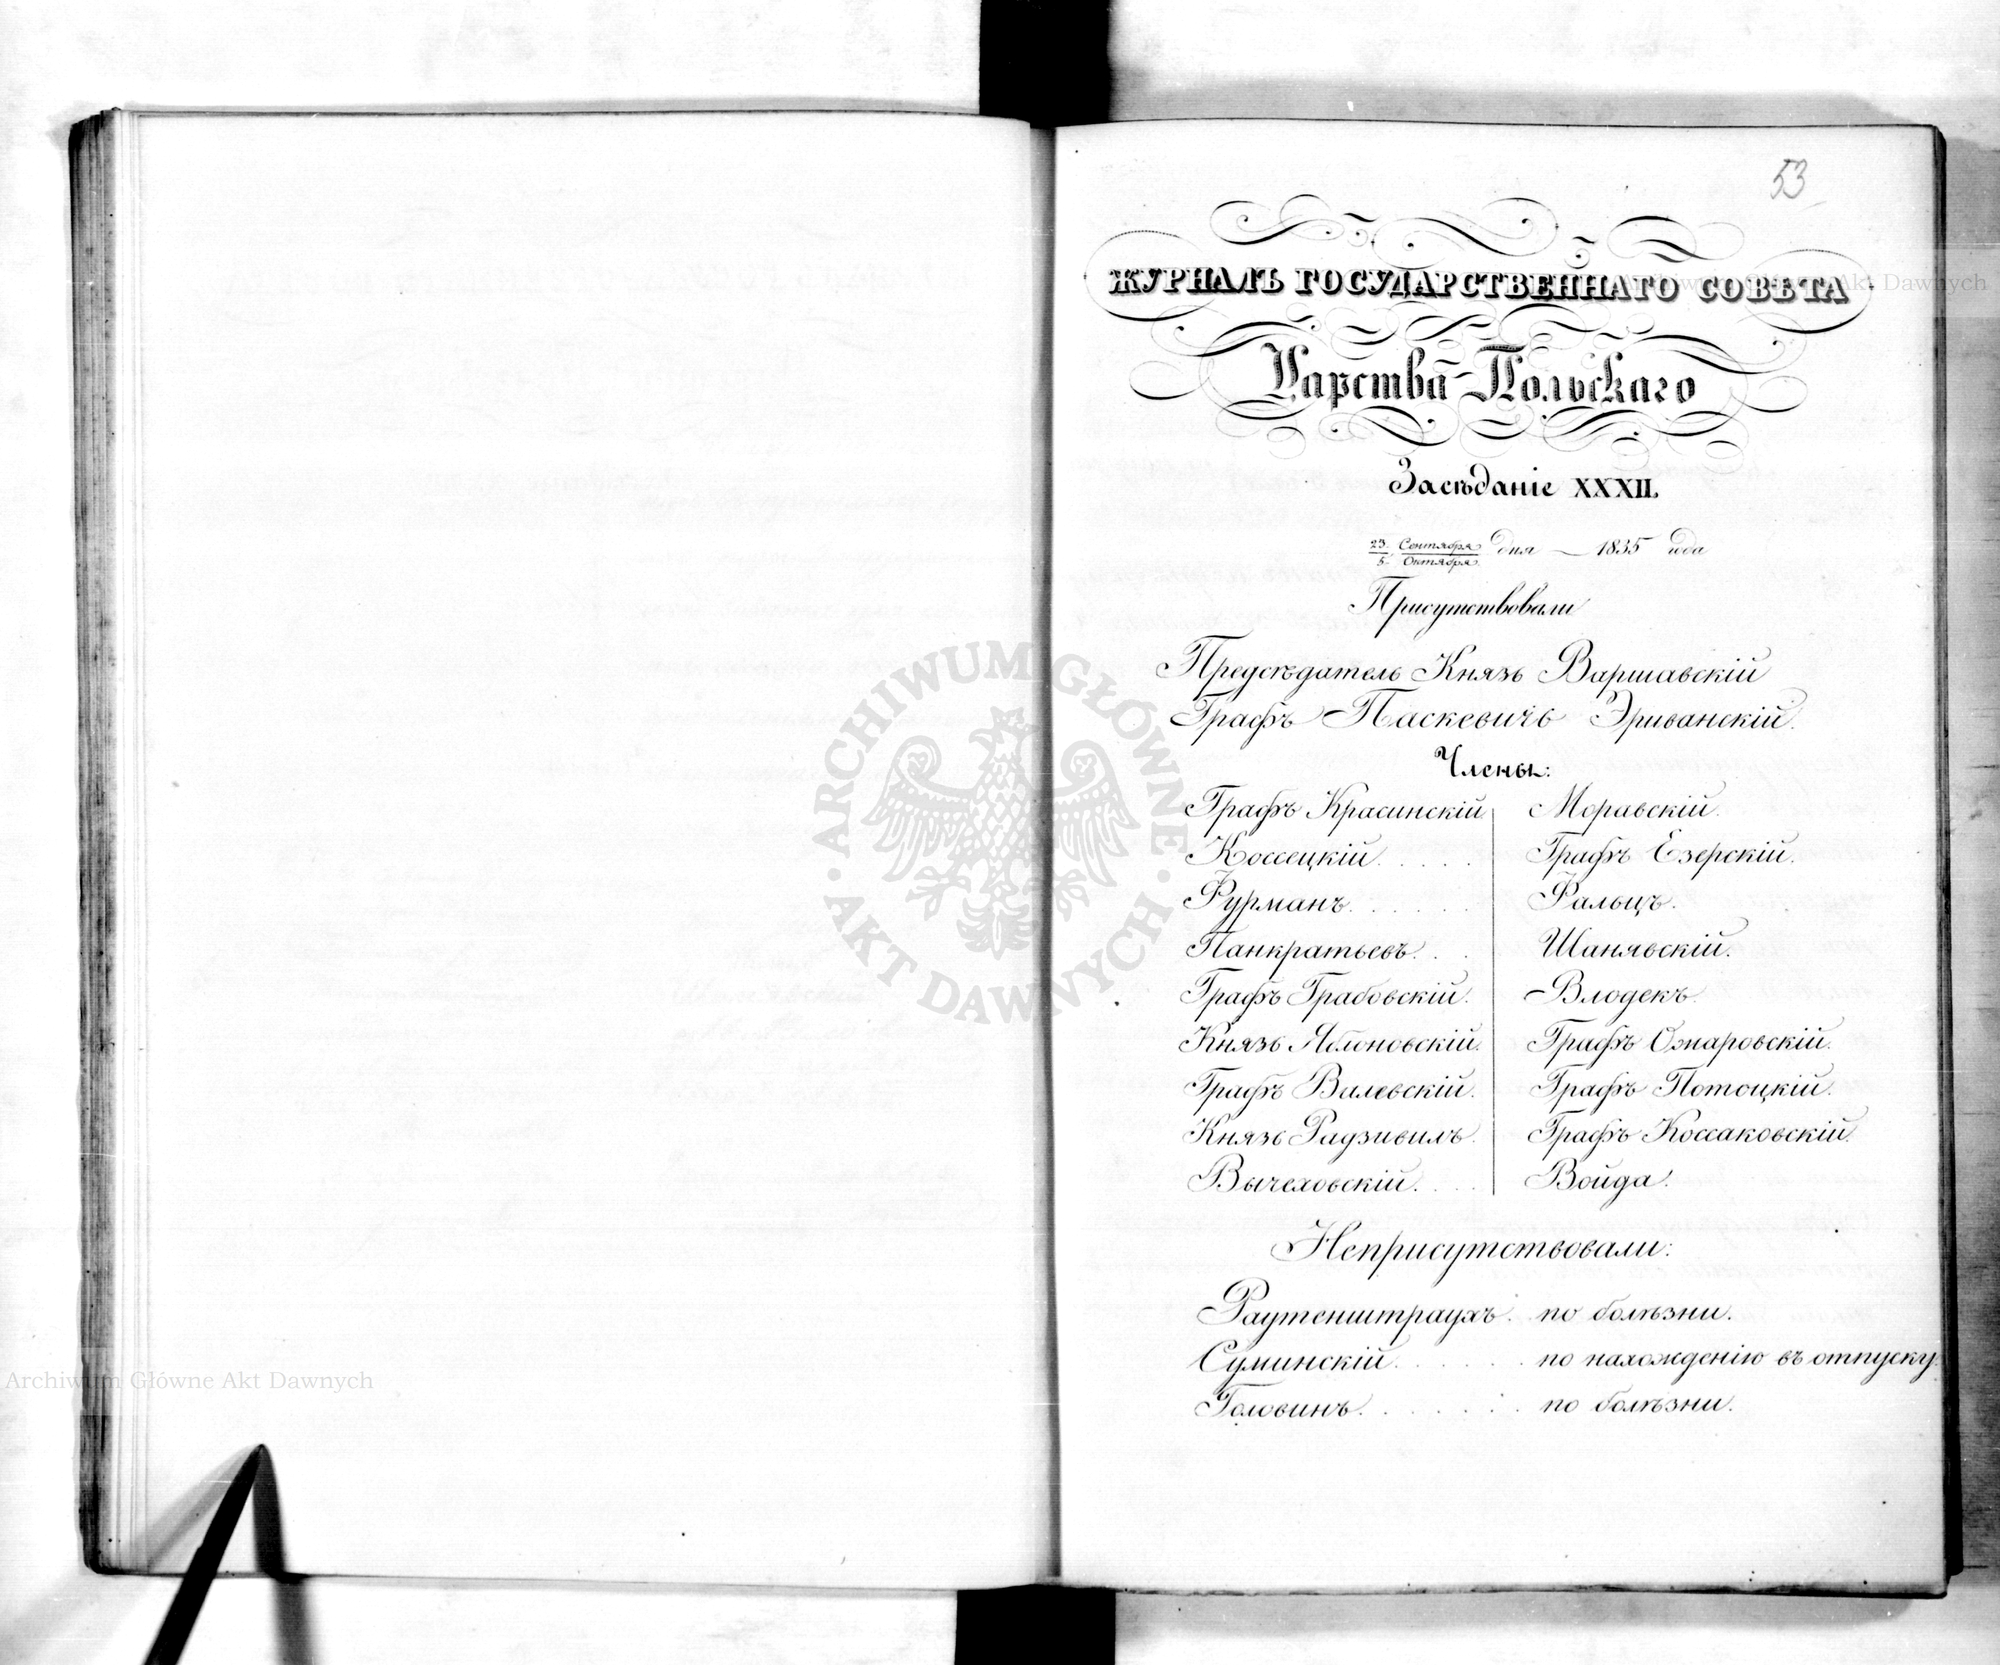 53
ЖУРНАЛЪ ГОСУДАРСТВЕННАГО СОВѢТА
Царства Польскаго
Засѣданіе XXXII.
23/5 Сентября/Октября дня — 1835 года
Присутствовали
Предсѣдатель Князь Варшавскій
Графъ Паскевичь Эриванскій.
Члены:
Графъ Красинскій Моравскій.
Коссецкій. Графъ Езерскій.
Фурманъ. Фальцъ.
Панкратьевъ. Шанявскій.
Графъ Грабовскій. Влодекъ.
Князь Яблоновскій. Графъ Ожаровскій.
Графъ Валевскій. Графъ Потоцкій.
Князь Радзивилъ. Графъ Коссаковскій.
Вычеховскій. Войда.
Неприсутствовали:
Раутенштраухъ. по болѣзни.
Суминскій. по нахожденію въ отпуску.
Головинъ. по болѣзни.
ARCHIWUM GŁÓWNE AKT DAWNYCH
Archiwum Główne Akt Dawnych
Archiwum Główne Akt Dawnych